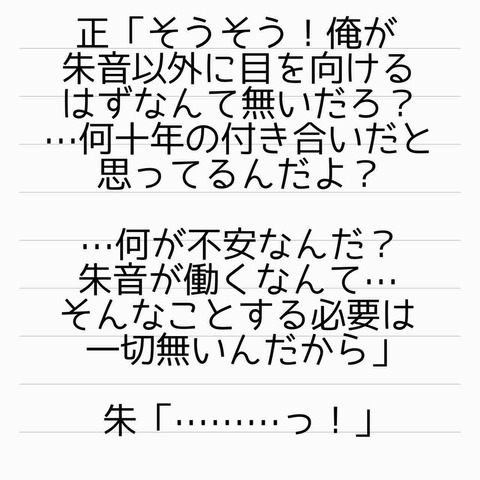 正「そうそう！俺が
朱音以外に目を向ける
はずなんて無いだろ？
…何十年の付き合いだと
思ってるんだよ？
…何が不安なんだ？
朱音が働くなんて…
そんなことする必要は
一切無いんだから」
朱「………っ！」